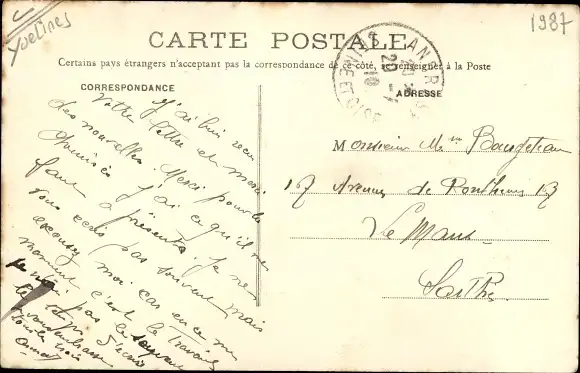 Yvelines
1987
CARTE POSTALE
Certains pays étrangers n'acceptant pas la correspondance de ce côté, se renseigner à la Poste
CORRESPONDANCE
ADRESSE
J'ai bien reçu
Votre lettre et merci
des nouvelles. Merci pour les
j'ai ce qu'il me
faut à présent. Je ne
vous écris pas souvent mais
excusez moi car en ce
moment c'est le travail
je n'ai pas le
temps d'écrire
Tous les trois
Monsieur Bougeteau
17 Avenue de Pontlieue 17
Le Mans
Sarthe